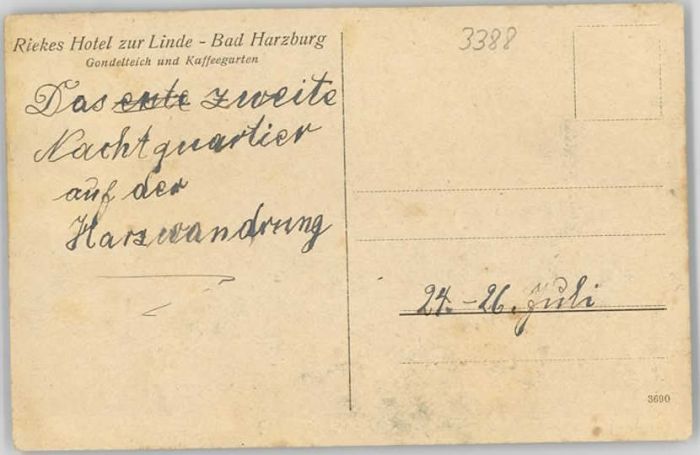 Riekes Hotel zur Linde - Bad Harzburg
Gondelteich und Kaffeegarten
Das erste zweite
Nachtquartier
auf der
Harzwandrung
3388
24.-26. Juli
3690